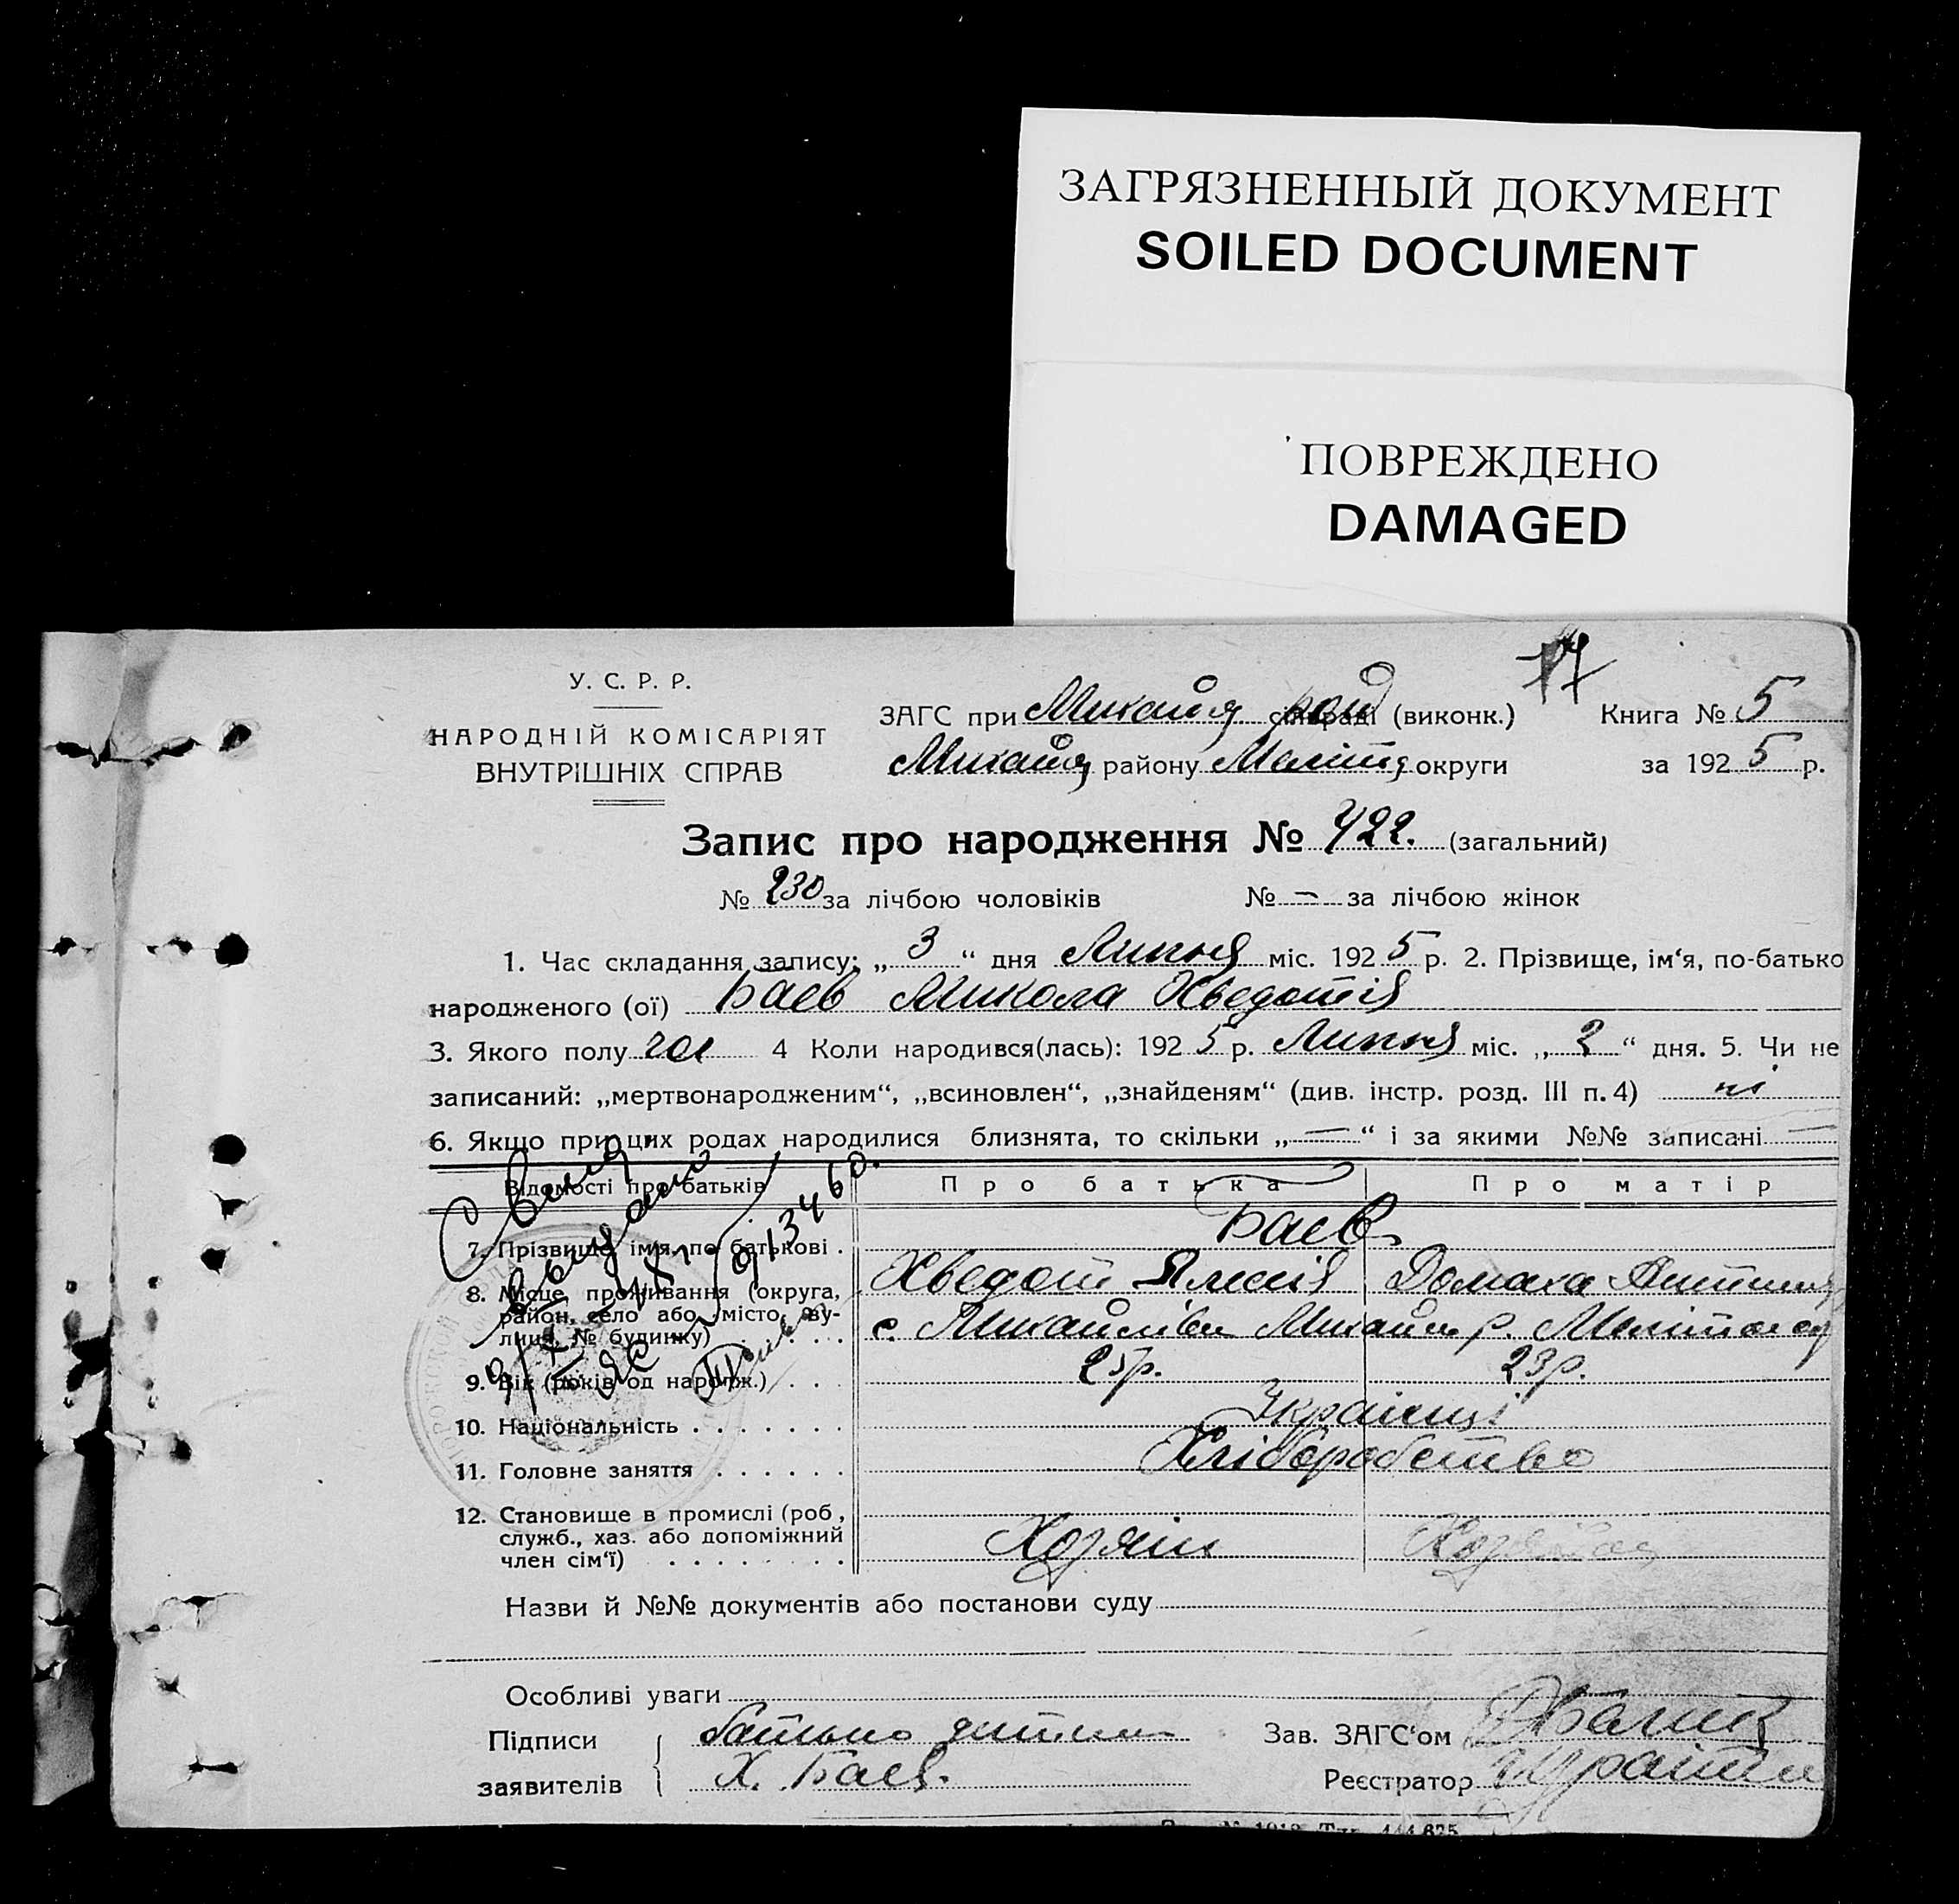 ЗАГРЯЗНЕННЫЙ ДОКУМЕНТ
SOILED DOCUMENT
ПОВРЕЖДЕНО
DAMAGED
У. С. Р. Р.
НАРОДНІЙ КОМІСАРІЯТ
ВНУТРІШНІХ СПРАВ
ЗАГС при Михайл (виконк.) Книга № 5
Михайл району Меліт округи за 1925 р.
Запис про народження № 422. (загальний)
№ 230 за лічбою чоловіків № — за лічбою жінок
1. Час складання запису: „ 3 “ дня Липня міс. 1925 р. 2. Прізвище, ім‘я, по-батько
народженого (ої) Баев Микола Хведотів
3. Якого полу чол 4 Коли народився(лась): 1925 р. Липня міс. „ 2 “ дня. 5. Чи не
записаний: „мертвонародженим“, „всиновлен“, „знайденям“ (див. інстр. розд. III п. 4) ні
6. Якщо при цих родах народилися близнята, то скільки „ — “ і за якими №№ записані —
Відомості про батьків Про батька Про матір
7. Прізвище, ім‘я, по батькові . Баев
Хведот Домаха
8. Місце проживання (округа,
район, село або місто, ву-
лиця, № будинку) с. Михайлівка Михайл р. Мелітоп
9. Вік (років од нарожд.) . . . 25р. 23р.
10. Національність . . . . . . . Українці
11. Головне заняття . . . . . . Хліборобство
12. Становище в промислі (роб.,
служб., хаз. або допоміжний
член сім‘ї) . . . . . . . . Хозяін
Назви й №№ документів або постанови суду
Особливі уваги
Підписи батько дитини Зав. ЗАГС‘ом
заявителів Х. Баев. Реєстратор